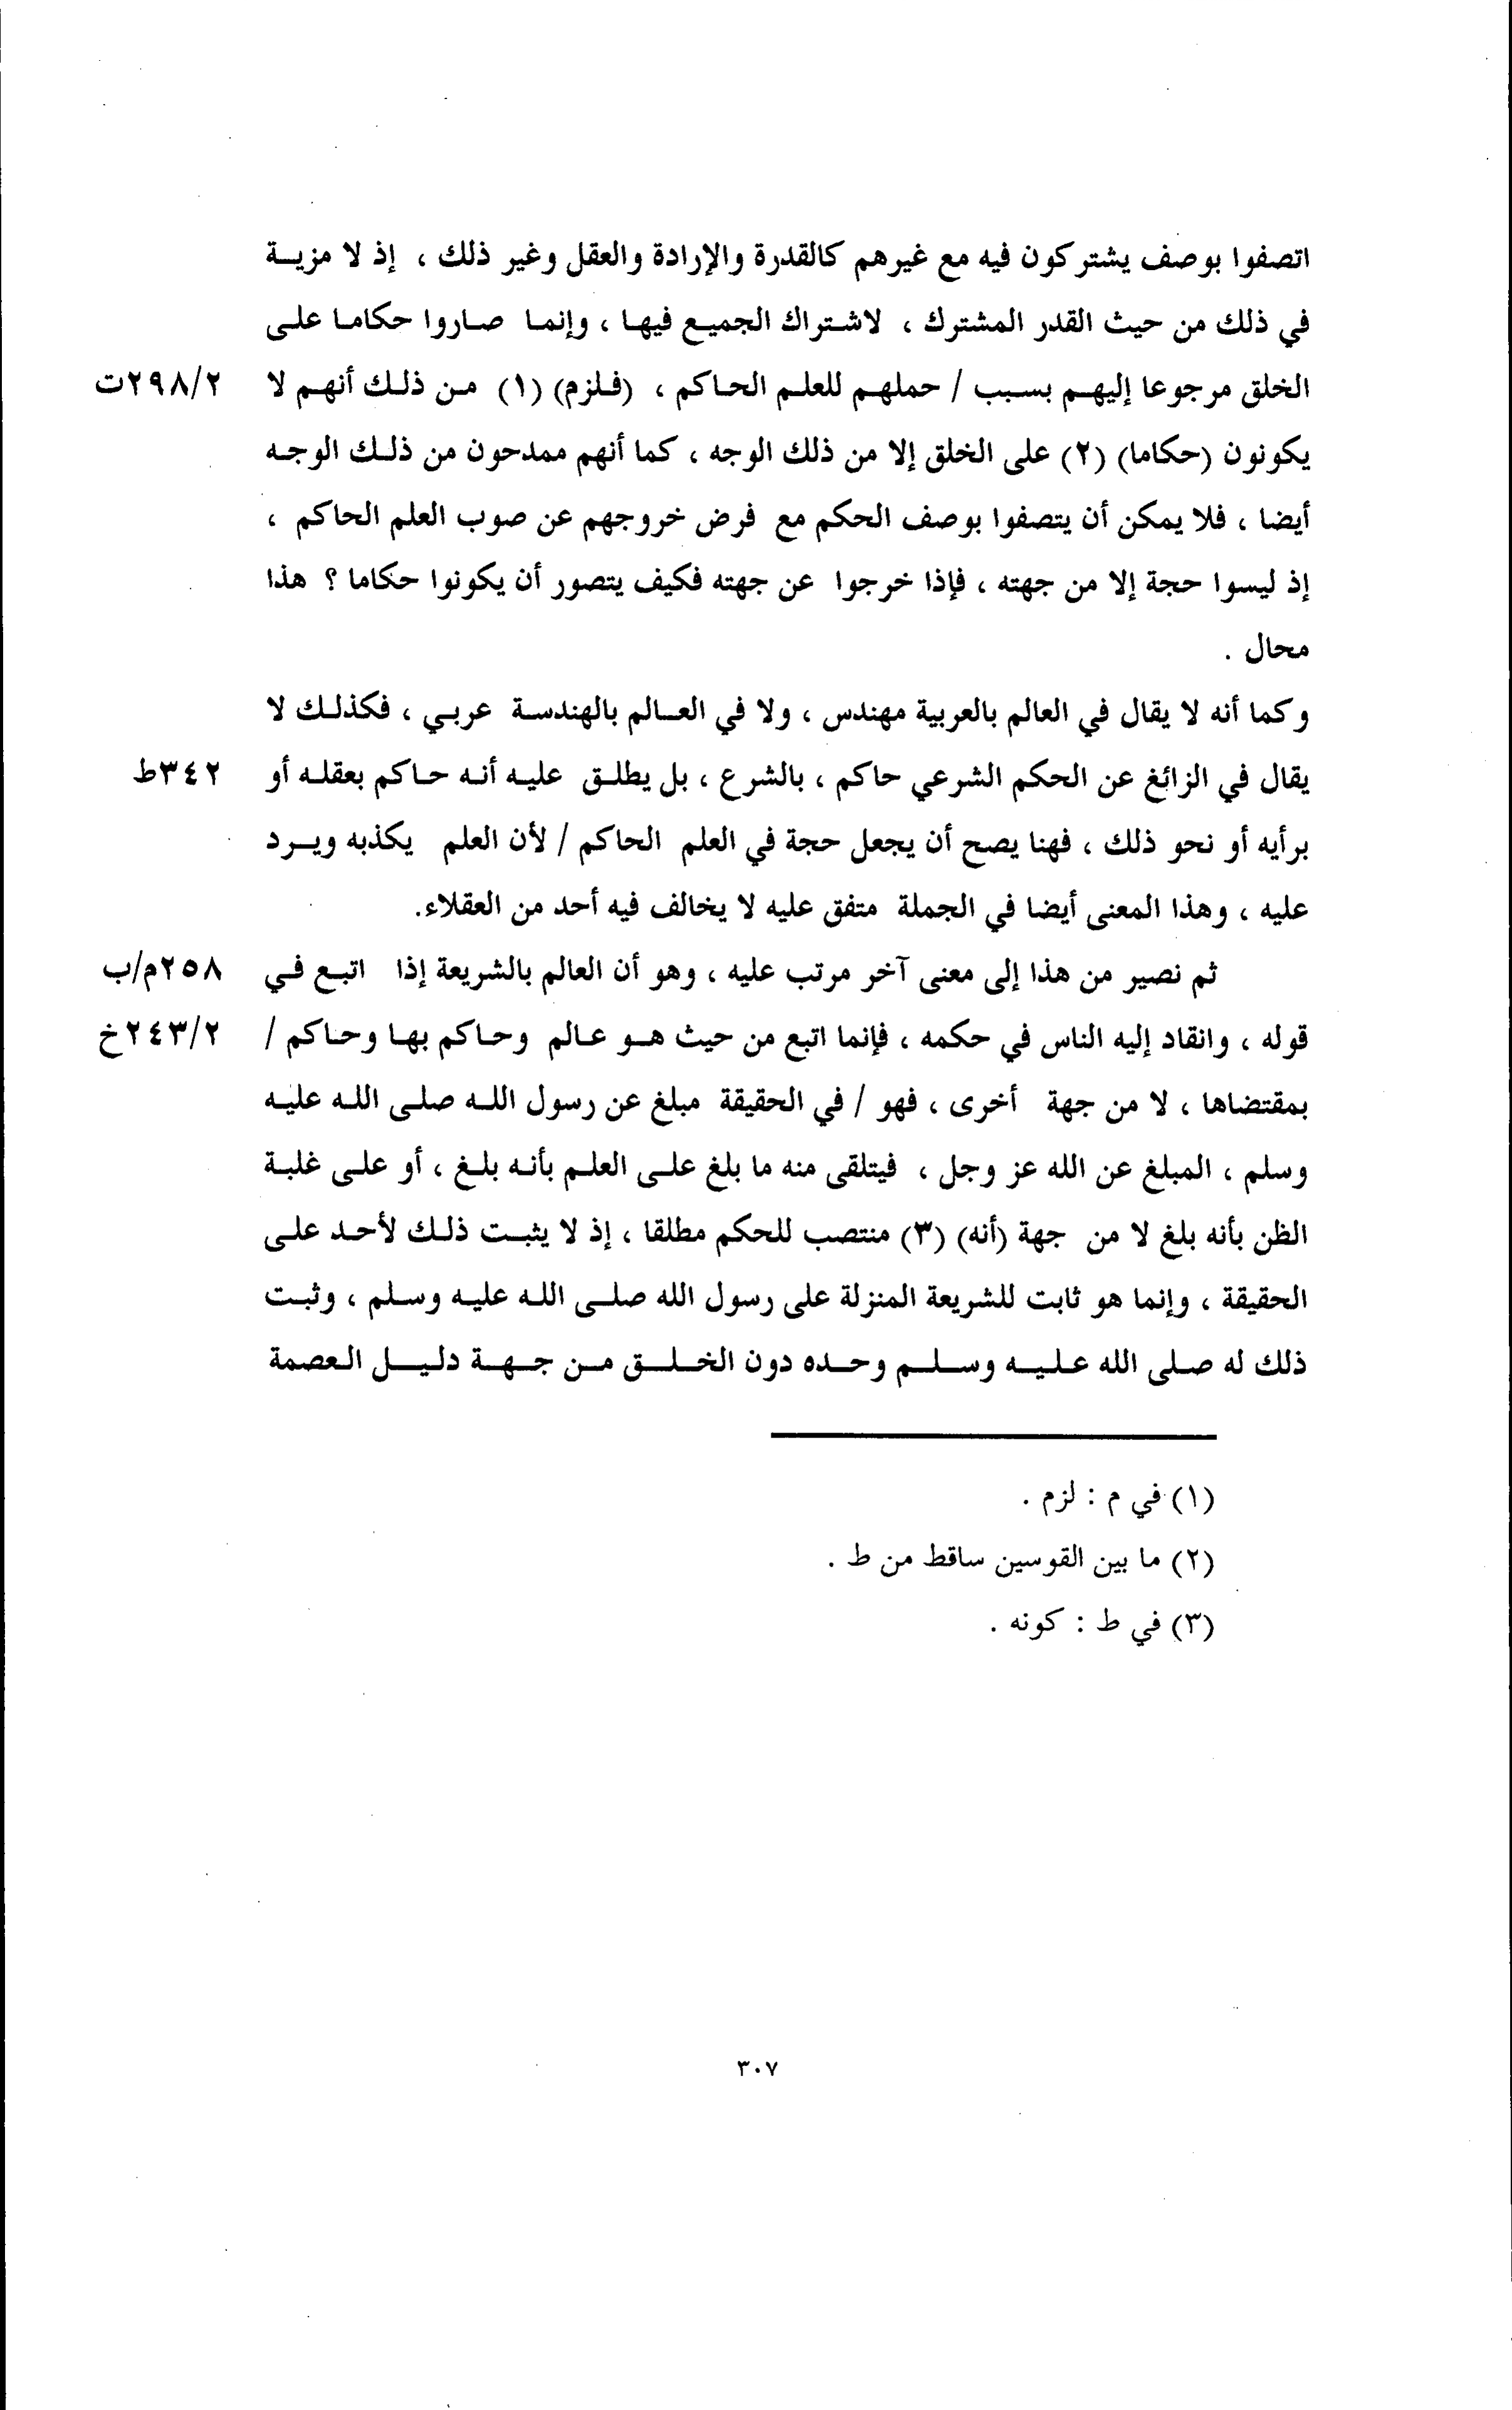 اتصفوا بوصف يشتركون فيه مع غيرهم كالقدرة والإرادة والعقل وغير ذلك ، إذ لا مزية
في ذلك من حيث القدر المشترك ، لاشتراك الجميع فيها ، وإنما صاروا حكاما على
الخلق مرجوعا إليهم بسبب / حملهم للعلم الحاكم ، (فلزم) (١) من ذلك أنهم لا ٢٩٨/٢ت
يكونون (حكاما) (٢) على الخلق إلا من ذلك الوجه ، كما أنهم ممدحون من ذلك الوجه
أيضا ، فلا يمكن أن يتصفوا بوصف الحكم مع فرض خروجهم عن صوب العلم الحاكم ،
إذ ليسوا حجة إلا من جهته ، فإذا خرجوا عن جهته فكيف يتصور أن يكونوا حكاما ؟ هذا
محال .
وكما أنه لا يقال في العالم بالعربية مهندس ، ولا في العالم بالهندسة عربي ، فكذلك لا
يقال في الزائغ عن الحكم الشرعي حاكم ، بالشرع ، بل يطلق عليه أنه حاكم بعقله أو ٣٤٢ط
برأيه أو نحو ذلك ، فهنا يصح أن يجعل حجة في العلم الحاكم / لأن العلم يكذبه ويرد
عليه ، وهذا المعنى أيضا في الجملة متفق عليه لا يخالف فيه أحد من العقلاء.
ثم نصير من هذا إلى معنى آخر مرتب عليه ، وهو أن العالم بالشريعة إذا اتبع في ٢٥٨م/ب
قوله ، وانقاد إليه الناس في حكمه ، فإنما اتبع من حيث هو عالم وحاكم بها وحاكم / ٢٤٣/٢خ
بمقتضاها ، لا من جهة أخرى ، فهو / في الحقيقة مبلغ عن رسول الله صلى الله عليه
وسلم ، المبلغ عن الله عز وجل ، فيتلقى منه ما بلغ على العلم بأنه بلغ ، أو على غلبة
الظن بأنه بلغ لا من جهة (أنه) (٣) منتصب للحكم مطلقا ، إذ لا يثبت ذلك لأحد على
الحقيقة ، وإنما هو ثابت للشريعة المنزلة على رسول الله صلى الله عليه وسلم ، وثبت
ذلك له صلى الله عليه وسلم وحده دون الخلق من جهة دليل العصمة
(١) في م : لزم .
(٢) ما بين القوسين ساقط من ط .
(٣) في ط : كونه .
٣٠٧